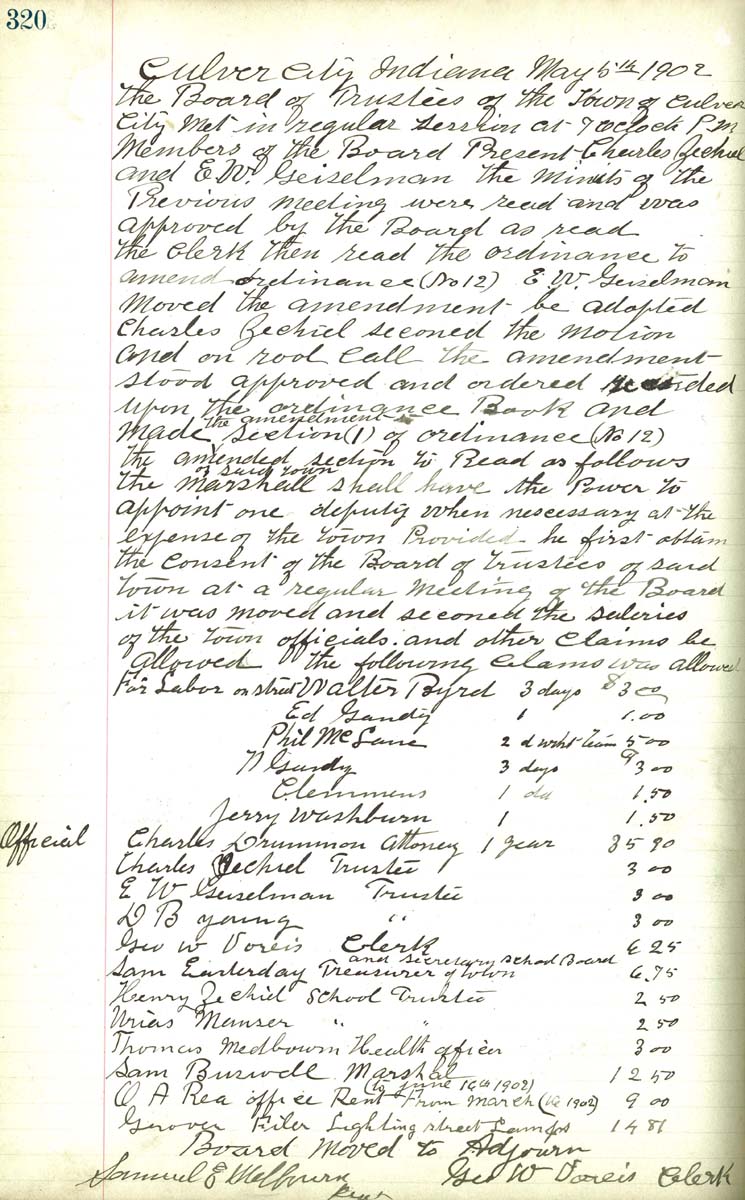 320
Culver City Indiana May 5th 1902
the Board of Trustees of the Town of Culver
City Met in regular session at 7 oclock P.M
Members of the Board Present Charles Zechiel
and E.W. Geiselman the minuts of the
Previous meeting were read and was
approved by the Board as read
the Clerk then read the ordinance to
amend ordinance (No 12) E W. Geiselman
moved the amendment be adopted
Charles Zechiel seconed the motion
and on rool Call the amendment
stood approved and ordered recorded
upon the ordinance Book and
the amendment
made section (1) of ordinance (No 12)
the amended section to Read as follows
of said town
the Marshall shall have the Power to
appoint one deputy when nescessary at the
expense of the town Provided he first obtain
the Consent of the Board of Trustees of said
town at a regular Meeting of the Board
it was moved and seconed the saleries
of the town officials and other Claims be
allowed the following Claims was allowed
For Labor on street Walter Byrd 3 days $3 00
Ed Gandy 1 1.00
Phil McLane 2 d with team 5 00
N Gandy 3 days 3 00
Clemmens 1 da 1.50
Jerry Washburn 1 1.50
Official Charles Drummon Attoney 1 year 35 90
Charles Zechiel Trustee 3 00
E W Geiselman Trustee 3 00
D B young " 3 00
Geo W Voreis Clerk 6 25
and secretary school Board
Sam Easterday Treasurer of town 6.75
Henry Zechiel School Trustee 2 50
Urias Menser " " 2 50
Thomas Medbourn Health officer 3 00
Sam Buswell Marshal 12 50
(to June 1st 1902)
O A Rea office Rent From March (1st 1902) 9 00
Grover Filer Lighting street Lamps 14 81
Board Moved to Adjourn
Samuel E Medbourn Geo W Voreis Clerk
Prest